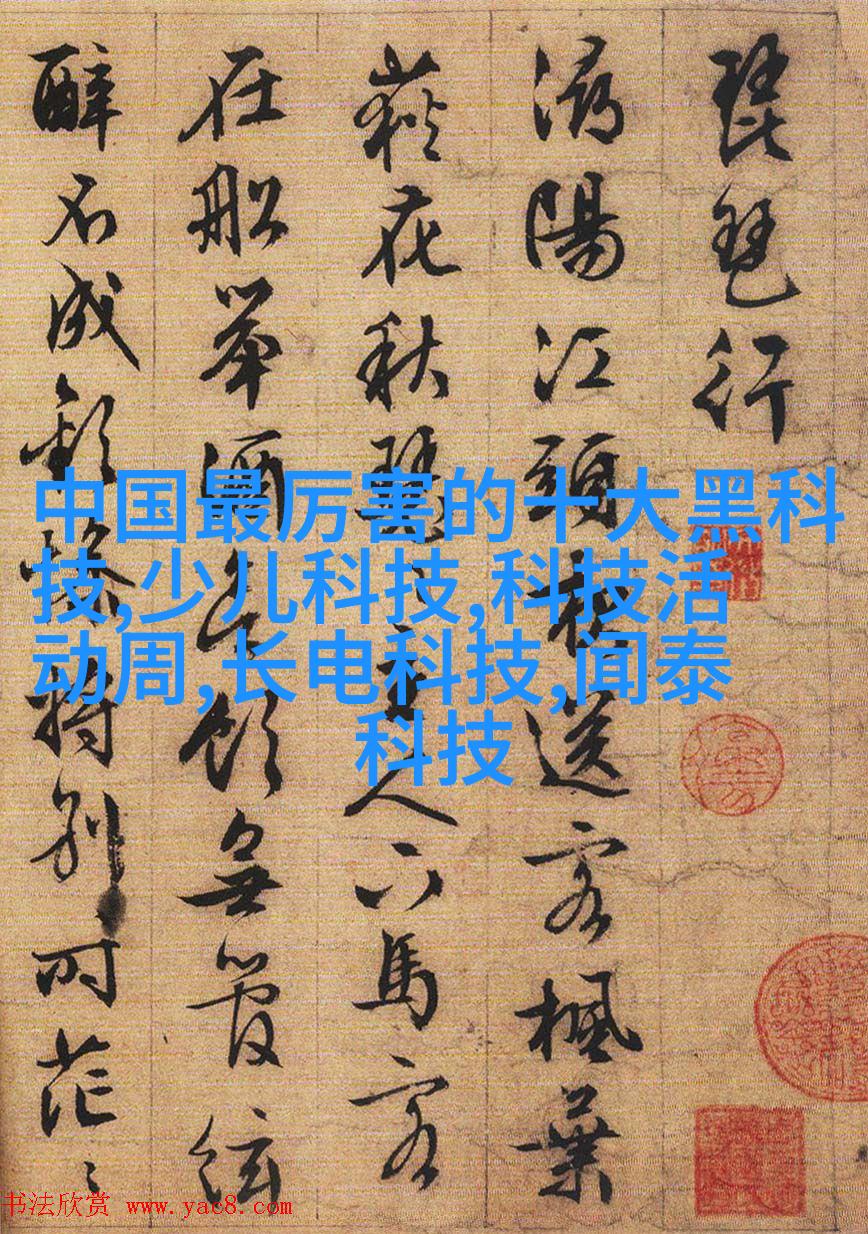 琵琶行
潯陽江頭夜送客楓葉
荻花秋瑟〻主人下馬客
在船舉酒欲飲無管絃
醉不成歡慘將别〻時茫〻
中国最厉害的十大黑科
技,少儿科技,科技活
动周,长电科技,闻泰
科技
书法欣赏 www.yac8.com